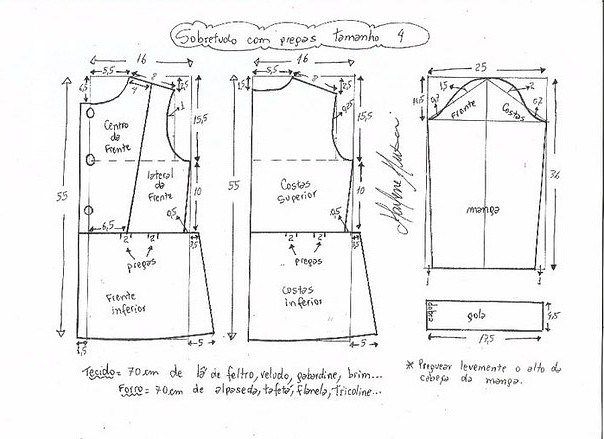 Sobretudo com pregas tamanho 4
16
5,5
8
4
2,5
1
15,5
10
55
6,5
0,5
2
2
pregas
Centro
da
Frente
lateral da
Frente
Frente
inferior
5
16
5,5
1,5
8
2,5
0,25
15,5
10
55
0,5
2
2
pregas
Costas
Superior
Costas
inferior
5
25
1,5
2
0,2
Frente
Costas
34
manga
1
1
dobra
gola
17,5
Tecido = 70 cm de lã de feltro, veludo, gabardine, brim...
Forro = 70 cm de alpaseda, tafetá, flanela, Tricoline...
* Preguear levemente o alto da
cabeça da manga.